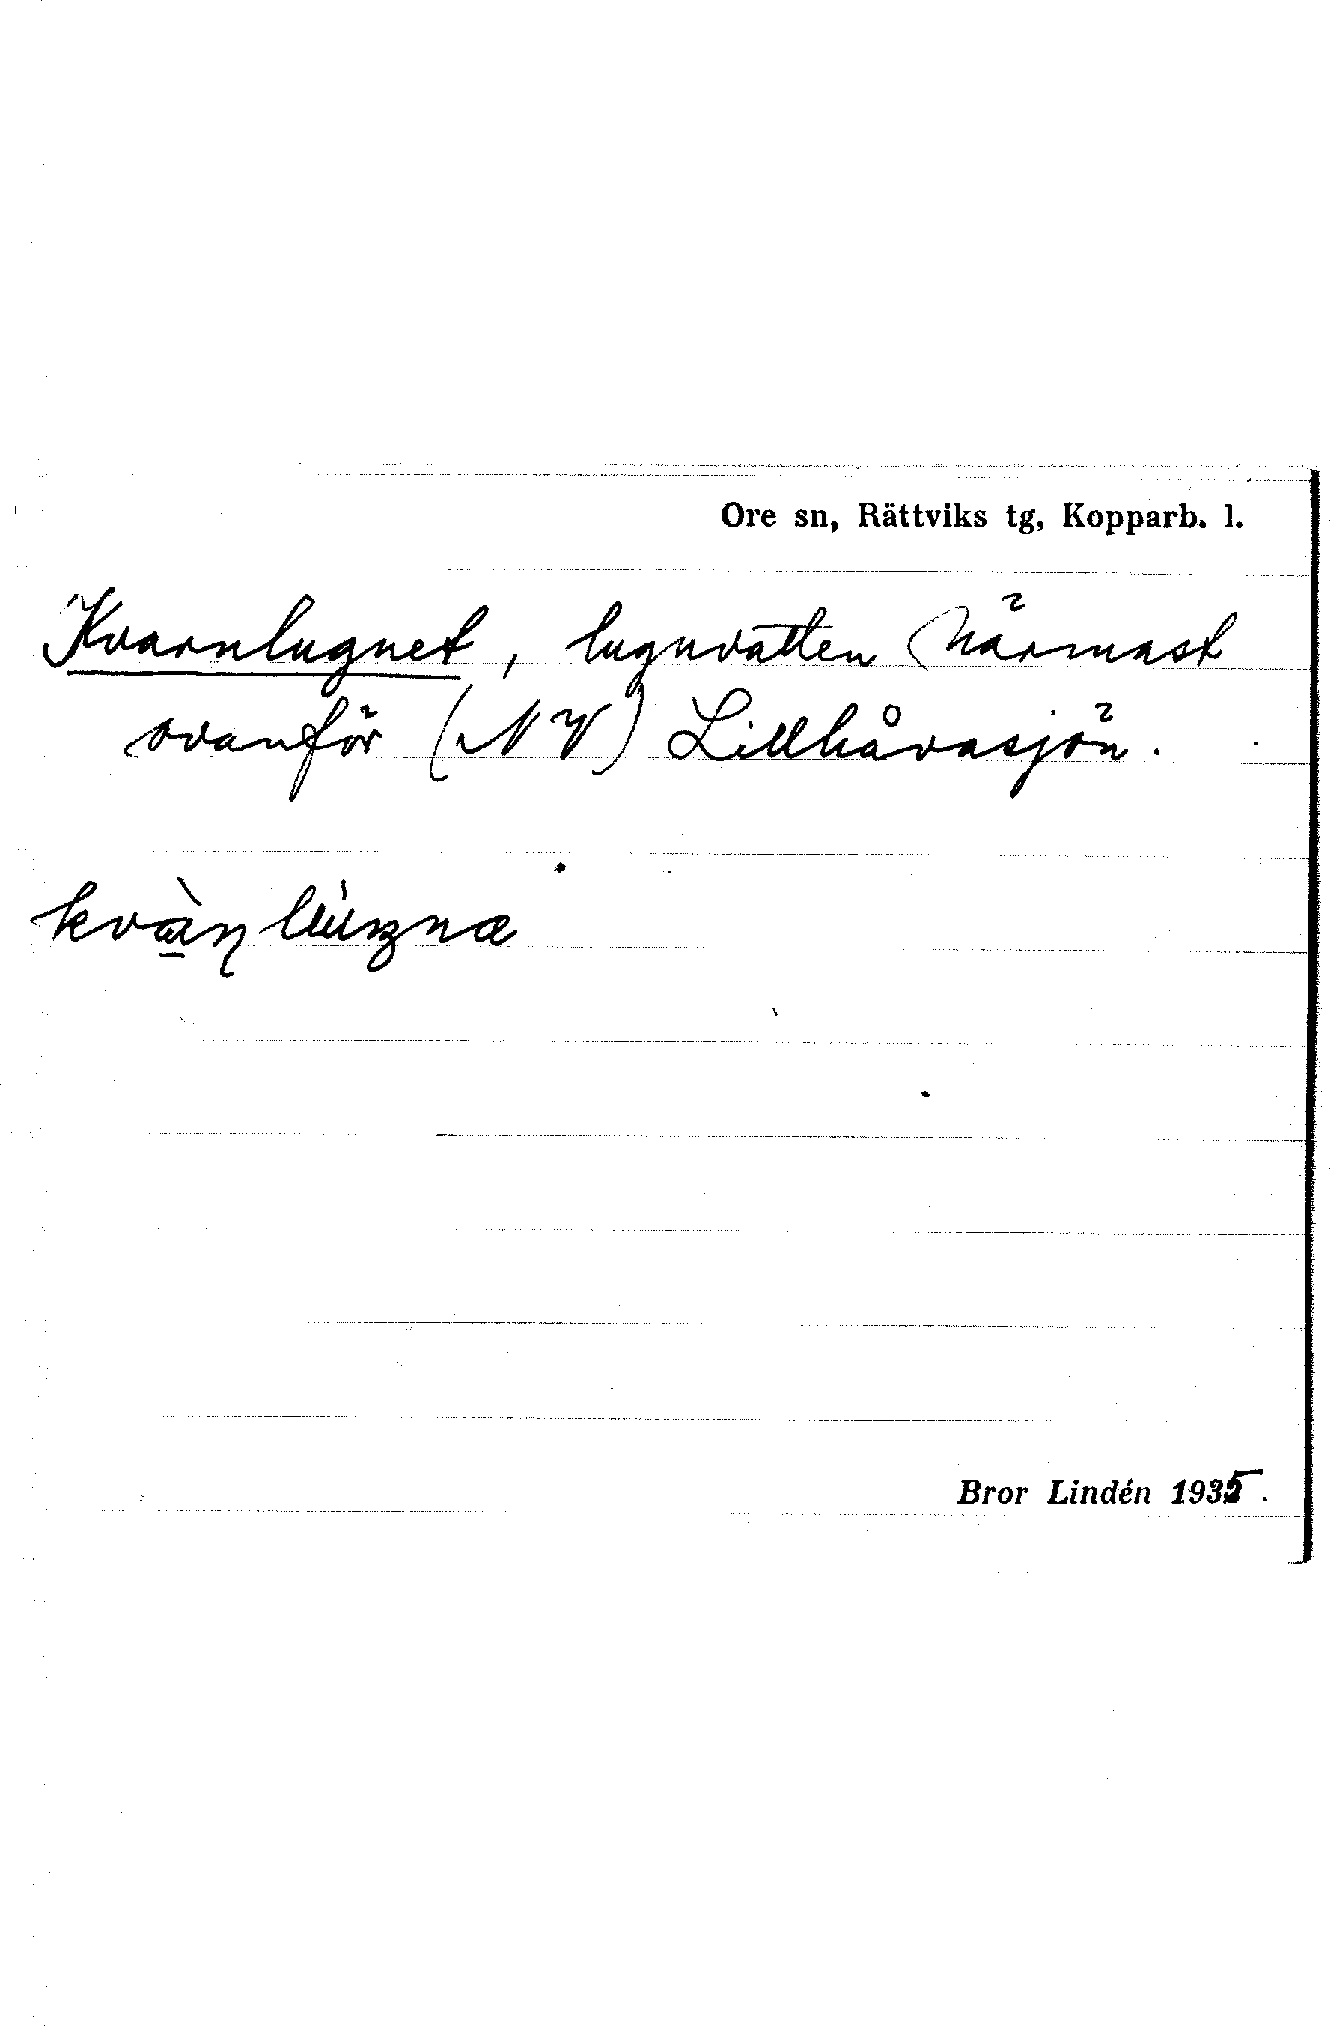 Ore sn, Rättviks tg, Kopparb. l.
Kvarnlugnet, lugnvatten närmast
ovanför (NV) Lillhåvasjön.
Bror Lindén 1935.